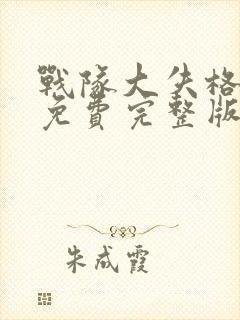 戰隊大失格
免費完整版
朱成霞